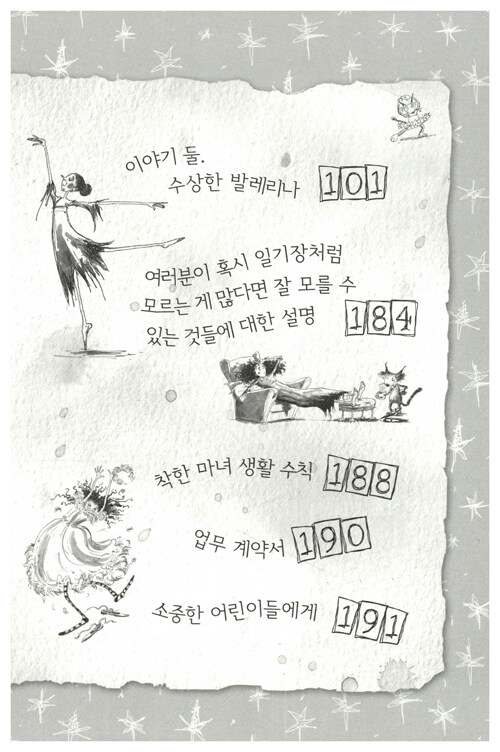 이야기 둘.
수상한 발레리나 101
여러분이 혹시 일기장처럼
모르는 게 많다면 잘 모를 수
있는 것들에 대한 설명 184
착한 마녀 생활 수칙 188
업무 계약서 190
소중한 어린이들에게 191